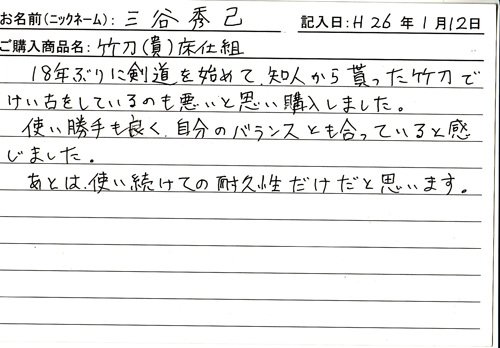 お名前(ニックネーム): 三谷秀己 記入日: H 26 年 1 月 12 日
ご購入商品名: 竹刀(貴)床仕組
18年ぶりに剣道を始めて、知人から貰った竹刀で
けい古をしているのも悪いと思い購入しました。
使い勝手も良く、自分のバランスとも合っていると感
じました。
あとは、使い続けての耐久性だけだと思います。